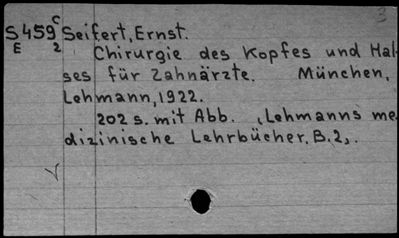 S459 C Seifert, Ernst.
E 2
Chirurgie des Kopfes und Hal-
ses für Zahnärzte. München,
Lehmann, 1922.
202 s. mit Abb. (Lehmanns me
dizinische Lehrbücher, B. 2).